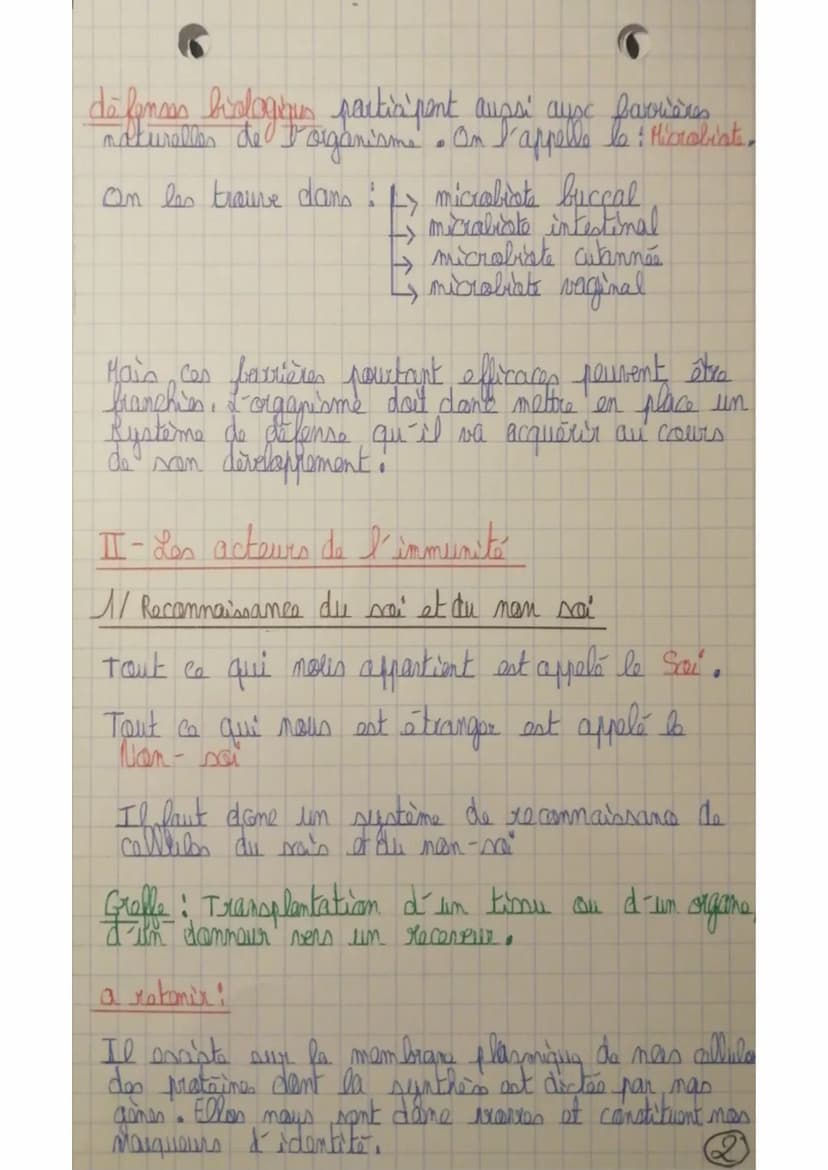 défenses biologiques participent aussi avec barrières
naturelles de l'organisme. On l'appelle le : Microbiote.
On les trouve dans : ↳ microbiote buccal
↳ microbiote intestinal
↳ microbiote cutannée
↳ microbiote vaginal
Mais ces barrières pourtant efficaces peuvent être
franchies. L'organisme doit donc mettre en place un
système de défense qu'il va acquérir au cours
de son développement.
II - Les acteurs de l'immunité
1/ Reconnaissance du soi et du non soi
Tout ce qui nous appartient est appelé le Soi.
Tout ce qui nous est étranger est appelé le
Non-soi
Il faut donc un système de reconnaissance de
cellules du sois et du non-soi
Greffe : Transplantation d'un tissu ou d'un organe,
d'un donneur vers un receveur.
a retenir :
Il existe sur la membrane plasmique de nos cellules
des protéines dont la synthèse est dictée par nos
gènes. Elles nous sont donc et constituent nos
Marqueurs d'identité.
2